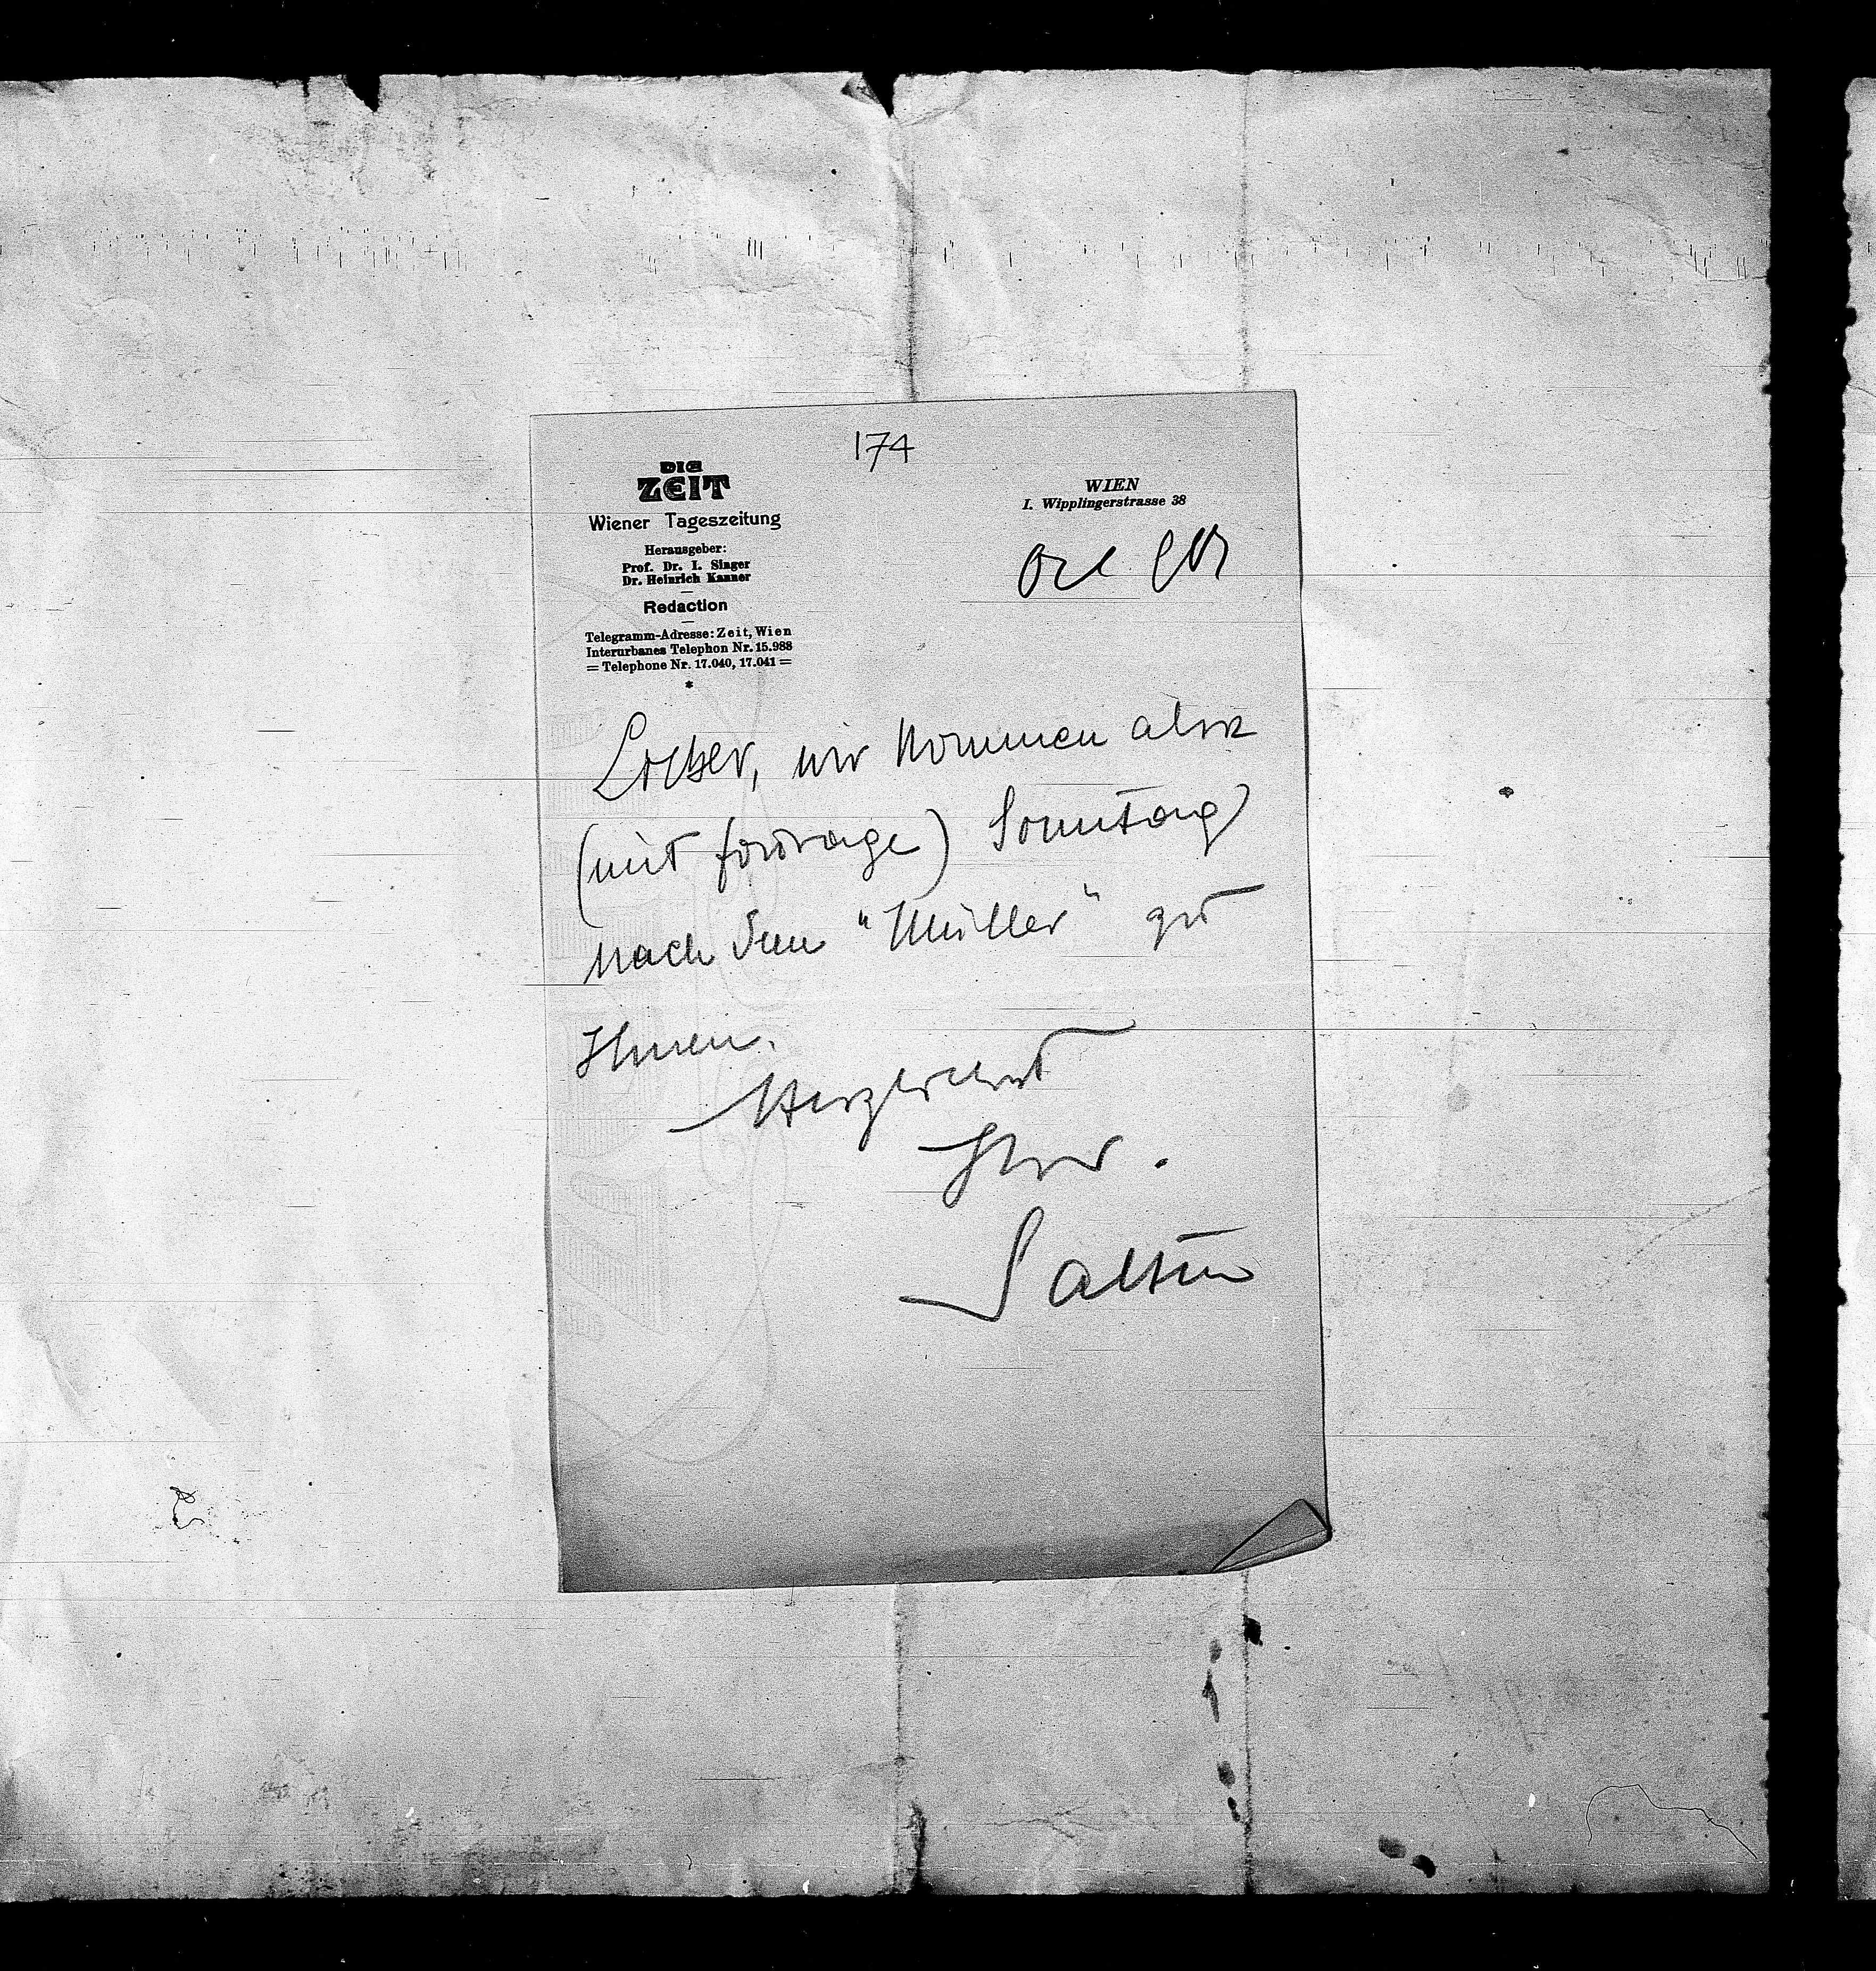 174
DIE
ZEIT
Wiener Tageszeitung
Herausgeber:
Prof. Dr. I. Singer
Dr. Heinrich Kanner
Redaction
Telegramm-Adresse: Zeit, Wien
Interurbanes Telephon Nr. 15.988
= Telephone Nr. 17.040, 17.041 =
*
WIEN
I. Wipplingerstrasse 38
Lieber, wir kommen also
(mit fordrage) Sonntag
nach dem "Müller" zu
Ihnen.
Herzlichst
Ihr.
Salten